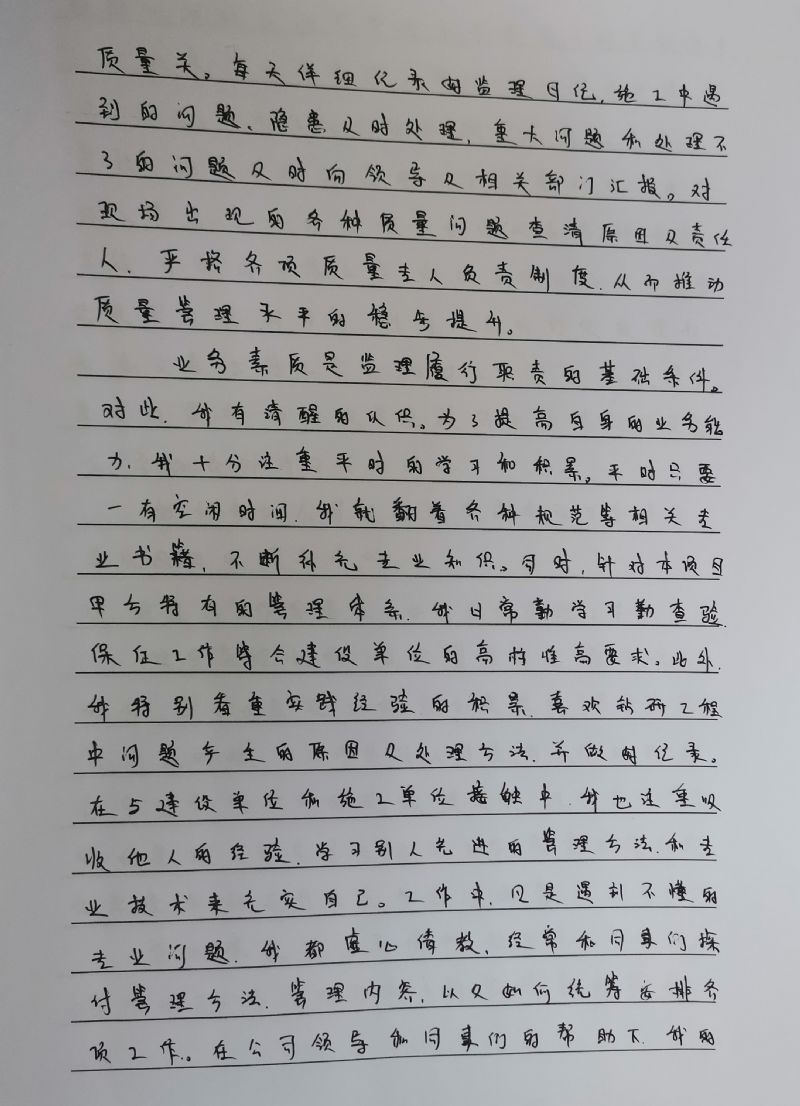 质量关。每天详细记录好监理日记,施工中遇
到的问题、隐患及时处理,重大问题和处理不
了的问题及时向领导及相关部门汇报。对
现场出现的各种质量问题查清原因及责任
人、严格各项质量责人负责制度.从而推动
质量管理水平的稳步提升。
业务素质是监理履行职责的基础条件。
对此.我有清醒的认识。为了提高自身的业务能
力,我十分注重平时的学习和积累。平时只要
一有空闲时间.我就翻着各种规范等相关专
业书籍,不断补充专业知识。同时,针对本项目
甲方特有的管理体系.我日常勤学习勤查验.
保证工作符合建设单位的高标性高要求。此外.
我特别看重实践经验的积累.喜欢钻研工程
中问题产生的原因及处理方法.并做好记录。
在与建设单位和施工单位接触中.我也注重吸
收他人的经验.学习别人先进的管理方法.和专
业技术来充实自己。工作中,凡是遇到不懂的
专业问题.我都虚心请教、经常和同事们探
付管理方法.管理内容,以及如何统筹安排各
项工作。在公司领导和同事们的帮助下.我的